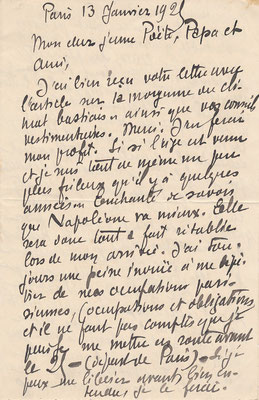 Paris 13 Janvier 192
Mon cher jeune Poète, Papa et
Ami,
J'ai bien reçu votre lettre avec
l'article sur la moyenne du cli-
mat bastiais ainsi que vos conseils
vestimentaires. Merci. J'en ferai
mon profit. Si si l'âge est venu
et je suis tout de même un peu
plus frileux qu'il y a quelques
années. Enchanté de savoir
que Napoléone va mieux. Elle
sera donc tout à fait rétablie
lors de mon arrivée. J'ai tou-
jours une peine inouïe à me
de mes occupations pari-
siennes, (occupations et obligations
et il ne faut pas compter que je
puisse me mettre en route avant
le 25 - (départ de Paris) - si je
peux me libérer avant, bien en-
tendu je le ferai.